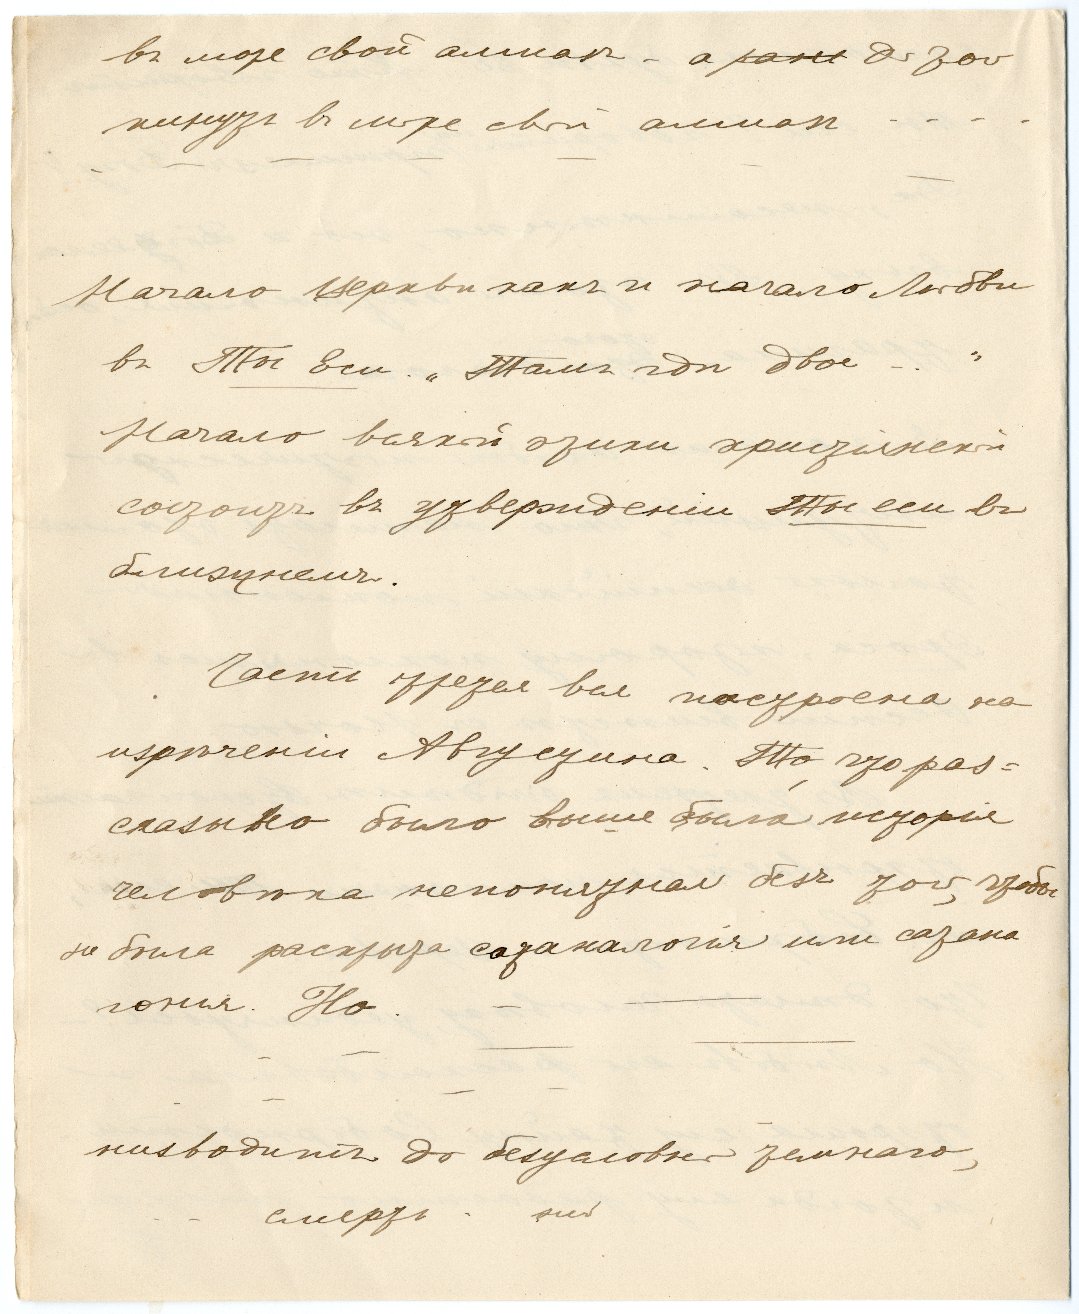 въ море свой алмазъ - а рани до зой
кинузъ въ море свой алмазъ - - - -
Начало Церкви какъ и начало Любви
въ Ты Еси. „Тамъ гдѣ двое -.."
Начало всякой этики христiянской
состоитъ въ утвержденiи Ты еси въ
ближнемъ.
Часть третья вся построена на
изрѣченiи Августина. То, что раз=
сказыно было выше была исторiя
человѣка непонятная безъ того, чтобы
не была раскрыта сатаналогiя или сатано
гонiя. Но.
низводитъ до безусловно земнаго,
- - смерть. ни